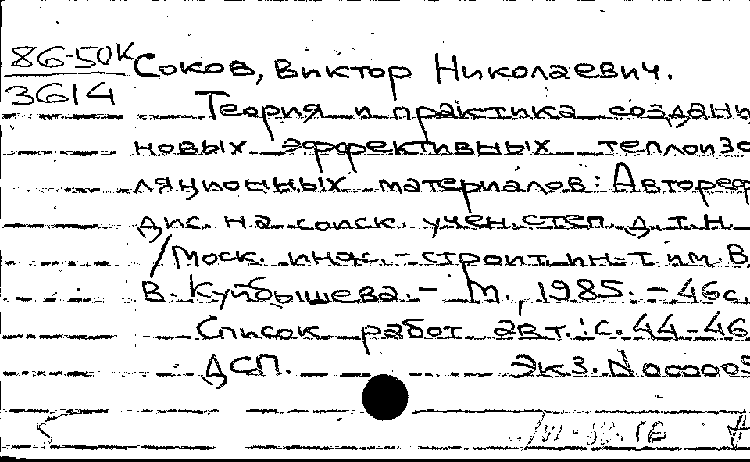 86-50к Соков, Виктор Николаевич.
3614
Теория и практика создани
новых эффективных теплоизо
ляционных материалов: Автореф
дис. на соиск. учен. степ. д.т.н.
/Моск. инж.-строит. ин-т им. В.
В. Куйбышева. – М., 1985. – 46с.
Список работ авт.: с. 44-46
ДСП. Экз. N 000005